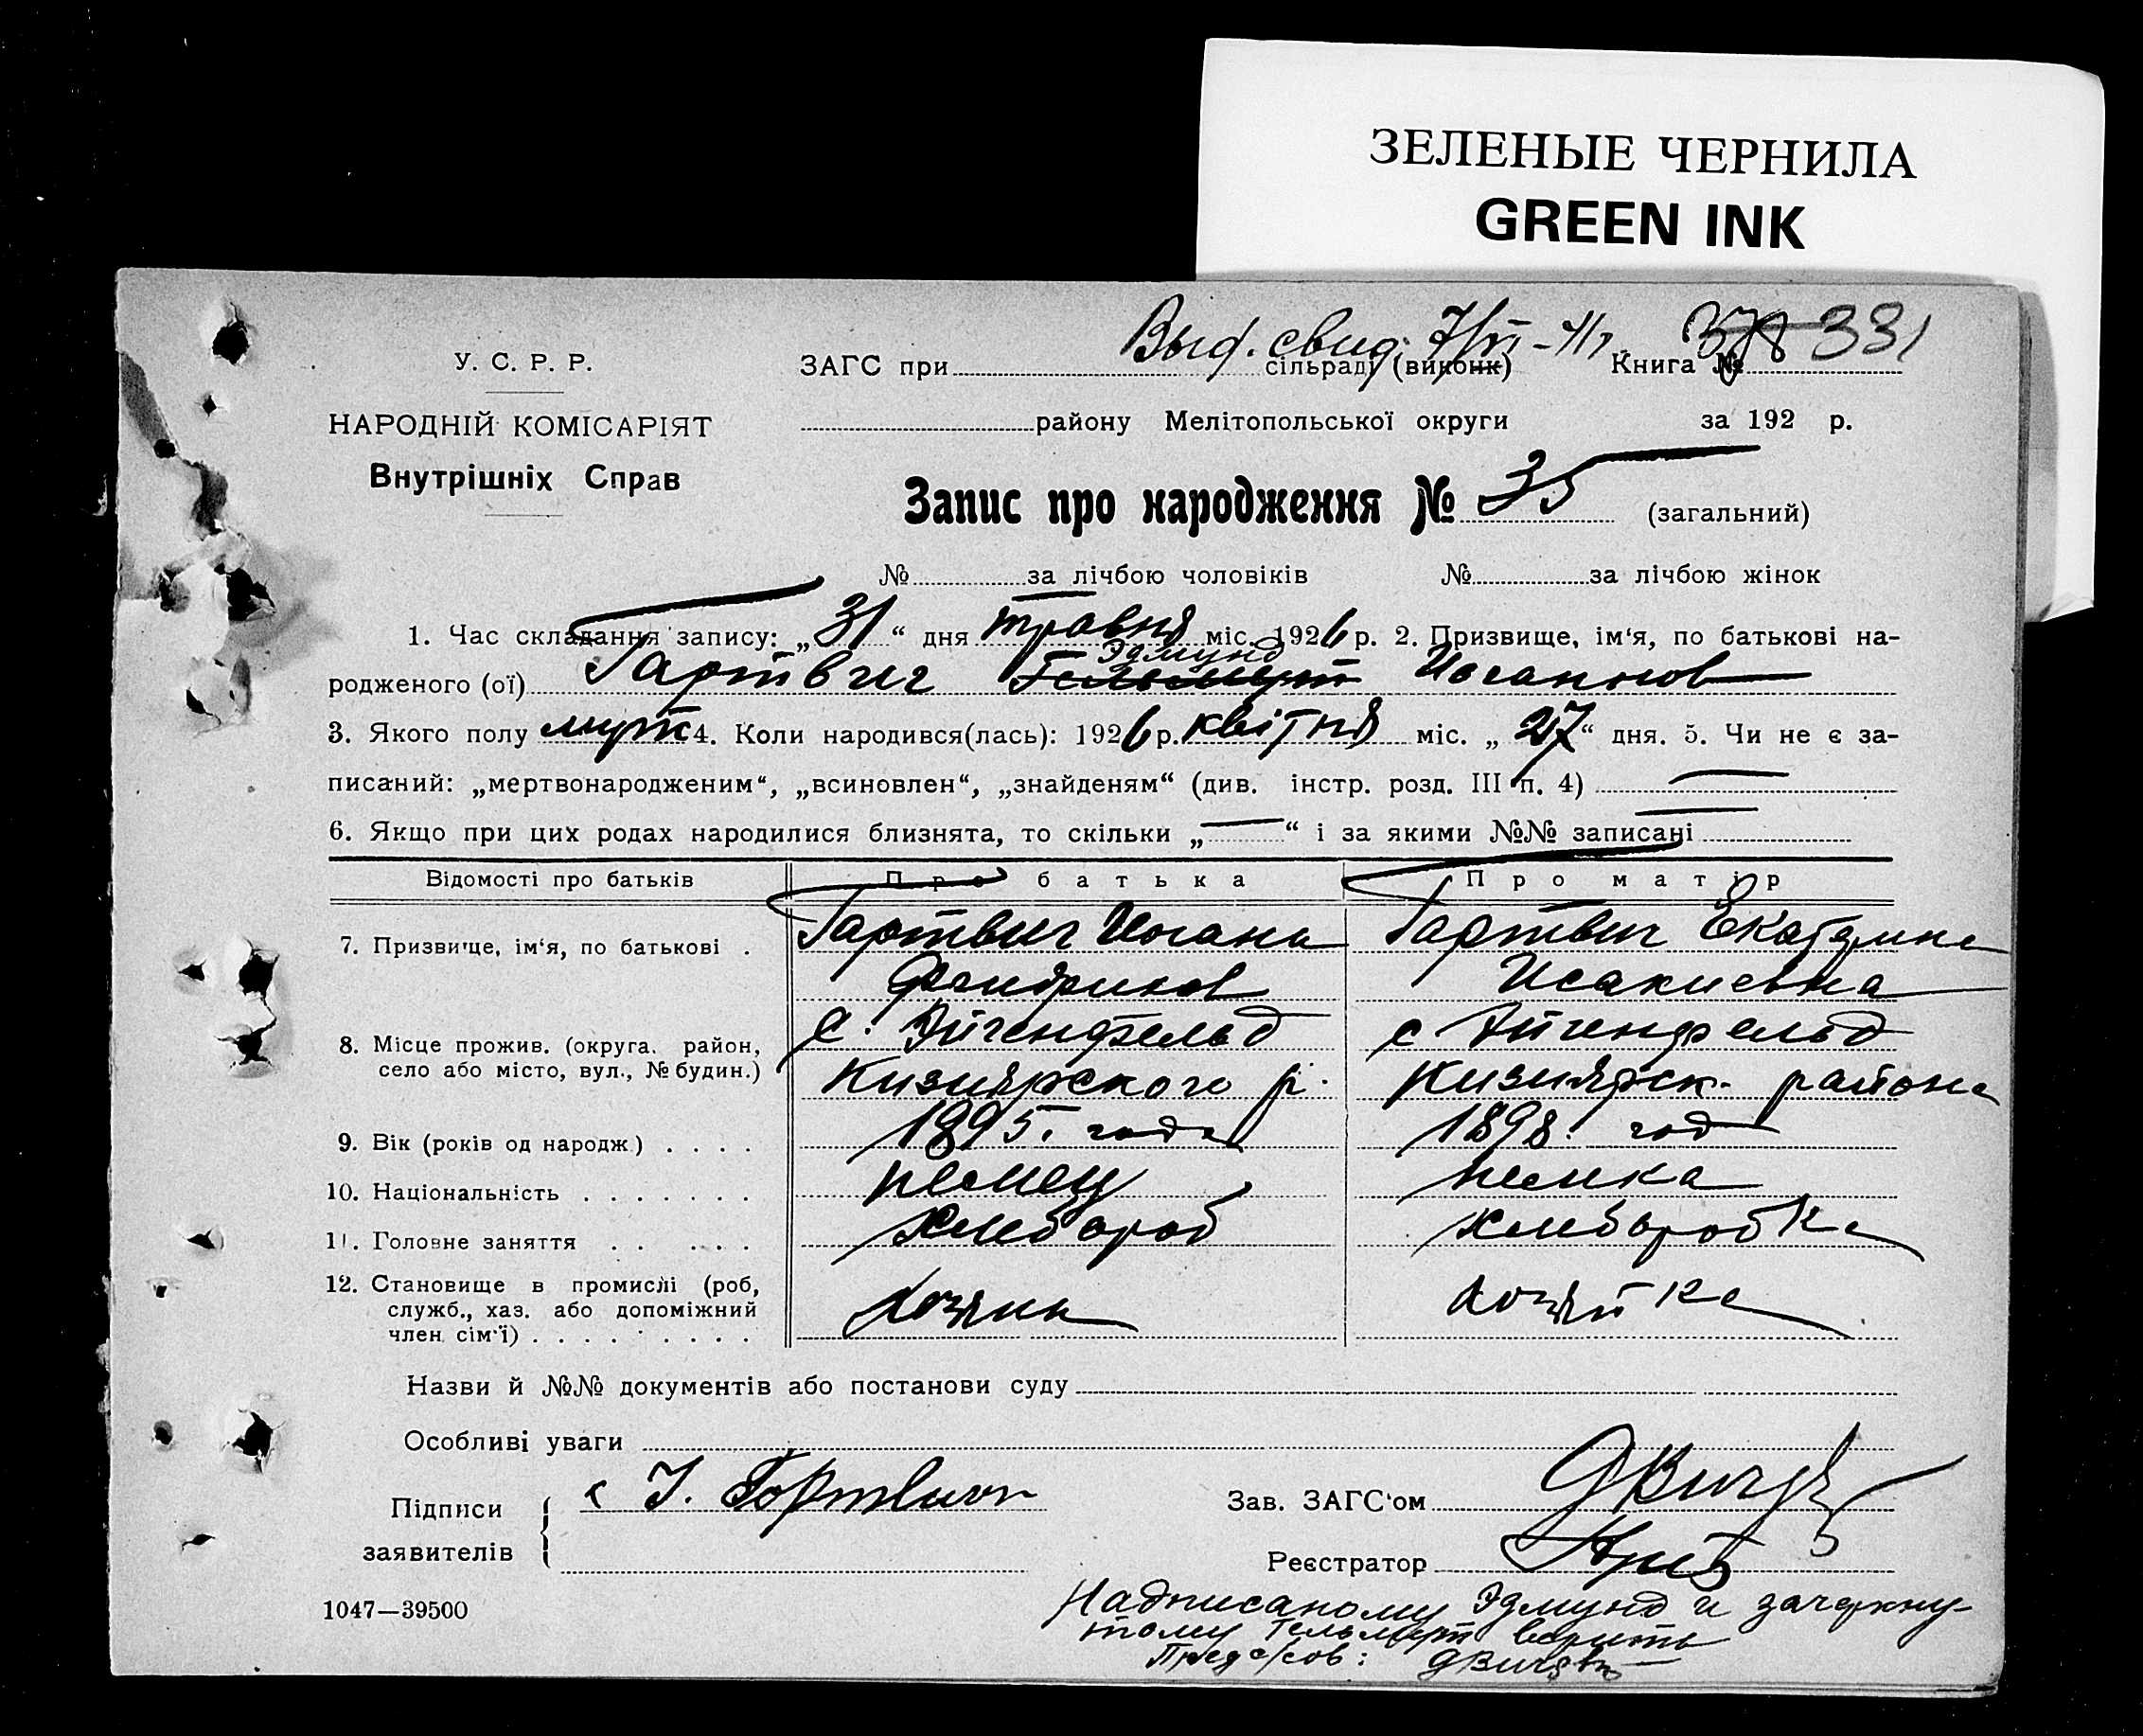 ЗЕЛЕНЫЕ ЧЕРНИЛА
GREEN INK
Выд. свид. 7/VI-41г. 378 331
У. С. Р. Р.
ЗАГС при сільраді (виконк) Книга №
НАРОДНІЙ КОМІСАРІЯТ
району Мелітопольської округи за 192 р.
Внутрішніх Справ
Запис про народження № 35 (загальний)
№ за лічбою чоловіків № за лічбою жінок
1. Час складання запису: „31“ дня травня міс. 1926 р. 2. Призвище, ім‘я, по батькові на-
Эдмунд
родженого (ої) Гартвиг Гельмут Иоганнов
3. Якого полу муж 4. Коли народився(лась): 1926 р. квітня міс. „27“ дня. 5. Чи не є за-
писаний: „мертвонародженим“, „всиновлен“, „знайденям“ (див. інстр. розд. III п. 4) —
6. Якщо при цих родах народилися близнята, то скільки „—“ і за якими №№ записані —
Відомості про батьків Про батька Про матір
7. Призвище, ім‘я, по батькові . Гартвиг Иоган Гартвиг Екатерина
Фридрихов Исакиевна
8. Місце прожив. (округа. район, с. Эйгенфельд с Эйгенфельд
село або місто, вул., № будин.) Кизиярского р. Кизиярск. района
9. Вік (років од народж.) . . . . 1895. года 1898. год
10. Національність . . . . . . . немец немка
11. Головне заняття . . . . . . хлебороб хлеборобка
12. Становище в промислі (роб, хозяин хозяйка
служб., хаз. або допоміжний
член сім‘ї) . . . . . . . . .
Назви й №№ документів або постанови суду
Особливі уваги
Підписи І. Гартвиг Зав. ЗАГС‘ом
заявителів Реєстратор
1047—39500
Надписаному Эдмунд и зачеркну-
тому Гельмут верить
Пред с/сов: